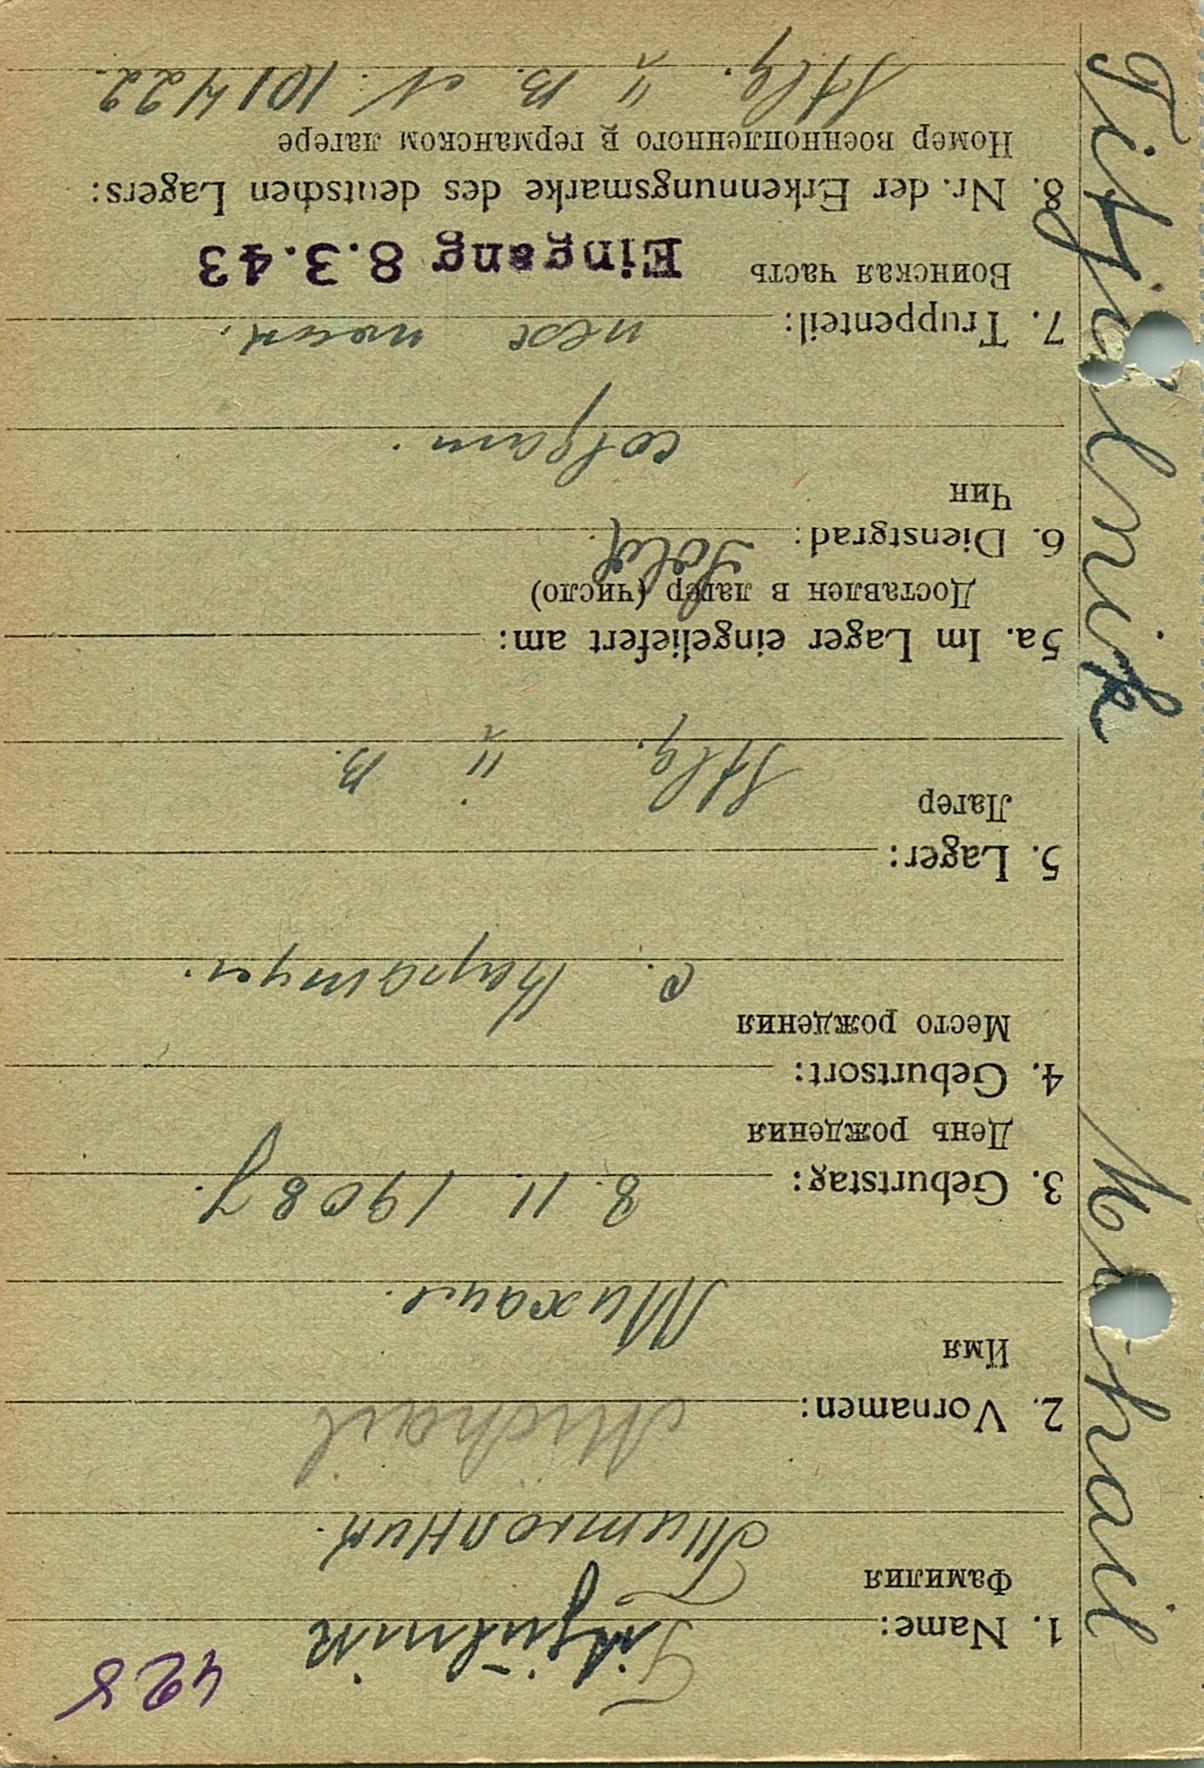 428
1. Name: Titjulnik
Фамилия Титюлник.
2. Vornamen: Michail
Имя Михаил.
3. Geburtstag: 8. 11. 1908 г.
День рождения
4. Geburtsort:
Место рождения с.
5. Lager:
Лагер Stlg. II B.
5a. Im Lager eingeliefert am:
Доставлен в лагер (число)
6. Dienstgrad: Sold.
Чин солдат.
7. Truppenteil: пех
Воинская часть Eingang 8.3.43
8. Nr. der Erkennungsmarke des deutschen Lagers:
Номер военнопленного в германском лагере
Stlg. II B. N. 101422.
Titjulnik Michail